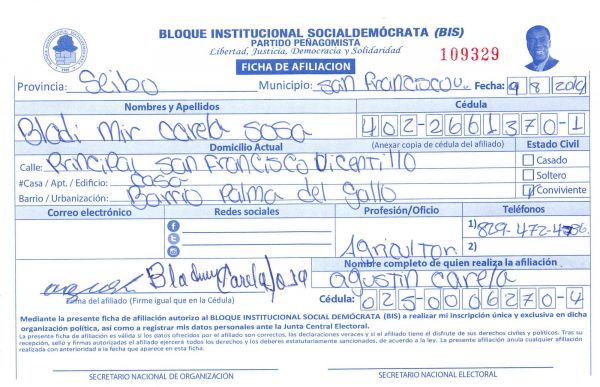 BLOQUE INSTITUCIONAL SOCIALDEMÓCRATA (BIS)
PARTIDO PEÑAGOMISTA
Libertad, Justicia, Democracia y Solidaridad
109329
FICHA DE AFILIACION
Provincia: Seibo Municipio: San Francisco Fecha: 9 8 2019
Nombres y Apellidos Cédula
Bladi mir Carela Sosa 402-2661370-1
Domicilio Actual (Anexar copia de cédula del afiliado) Estado Civil
Calle: Principal San Francisco Vicentillo Casado
#Casa / Apt. / Edificio: Casa Soltero
Barrio / Urbanización: Barrio Palma del Gallo Conviviente
Correo electrónico Redes sociales Profesión/Oficio Teléfonos
1) 829-472-
Agricultor 2)
Nombre completo de quien realiza la afiliación
Carela Sosa agustin Carela
Firma del afiliado (Firme igual que en la Cédula) Cédula: 025-0006270-4
Mediante la presente ficha de afiliación autorizo al BLOQUE INSTITUCIONAL SOCIAL DEMÓCRATA (BIS) a realizar mi inscripción única y exclusiva en dicha
organización política, así como a registrar mis datos personales ante la Junta Central Electoral.
La presente ficha de afiliación es válida si los datos ofrecidos por el afiliado son correctos, las declaraciones veraces y si el afiliado tiene el disfrute de sus derechos civiles y políticos. Tras su
recepción, sello y firmas autorizadas el afiliado ejercerá todos los derechos y los deberes estatutariamente sancionados, de acuerdo a la ley. La presente afiliación anula cualquier afiliación
realizada con anterioridad a la fecha que aparece en esta ficha.
SECRETARIO NACIONAL DE ORGANIZACIÓN SECRETARIO NACIONAL ELECTORAL